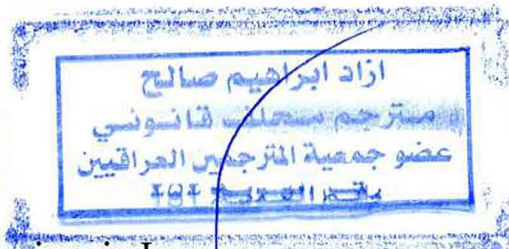 ازاد ابراهيم صالح
مترجم محلف قانوني
عضو جمعية المترجمين العراقيين